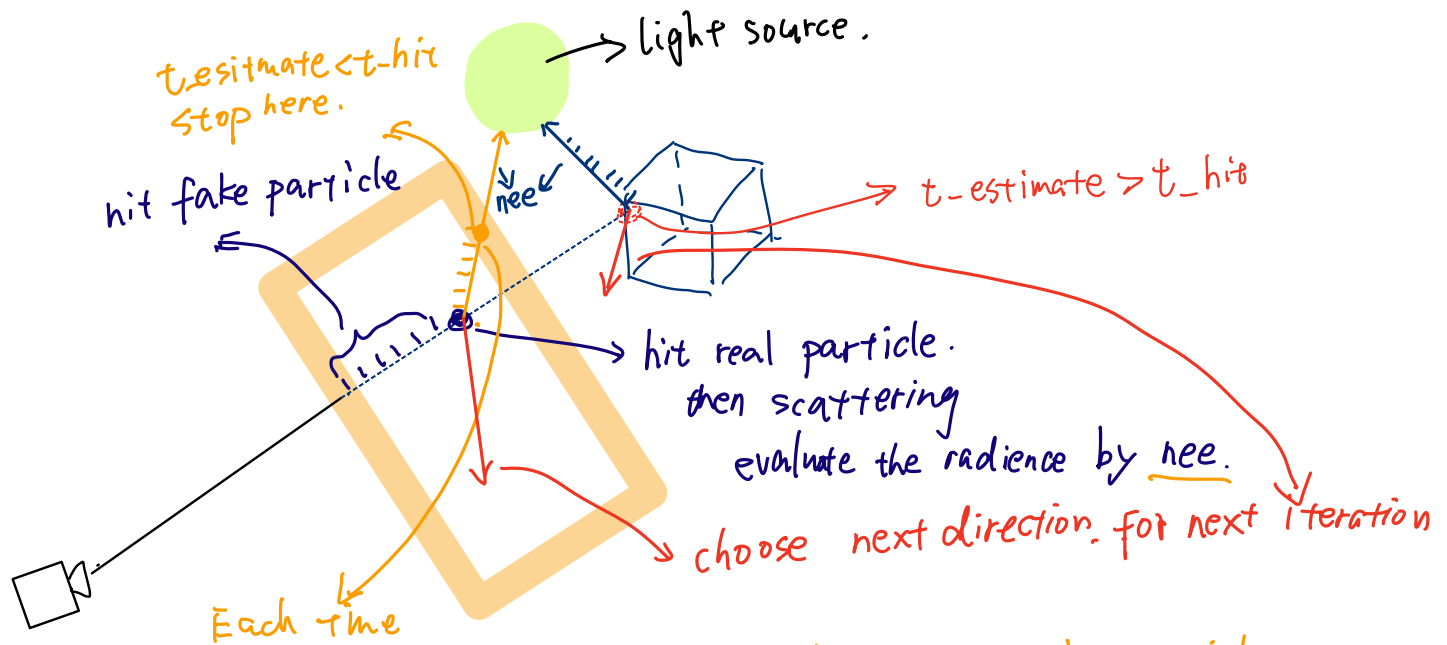 light source.
t_esitmate < t_hit
stop here.
hit fake particle
nee
t_estimate > t_hit
hit real particle.
then scattering
evaluate the radience by nee.
choose next direction. for next iteration
Each time